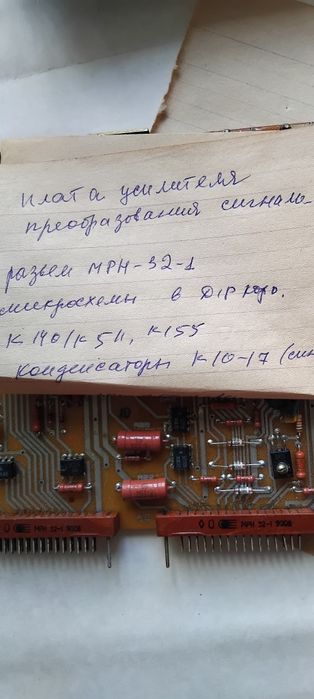 Плата усилителя
преобразования сигнала
разъем МРН-32-1
микросхемы в DIP
К 140/К511, К155
Конденсаторы К10-17
МРН 32-1 9008
МРН 32-1 9008